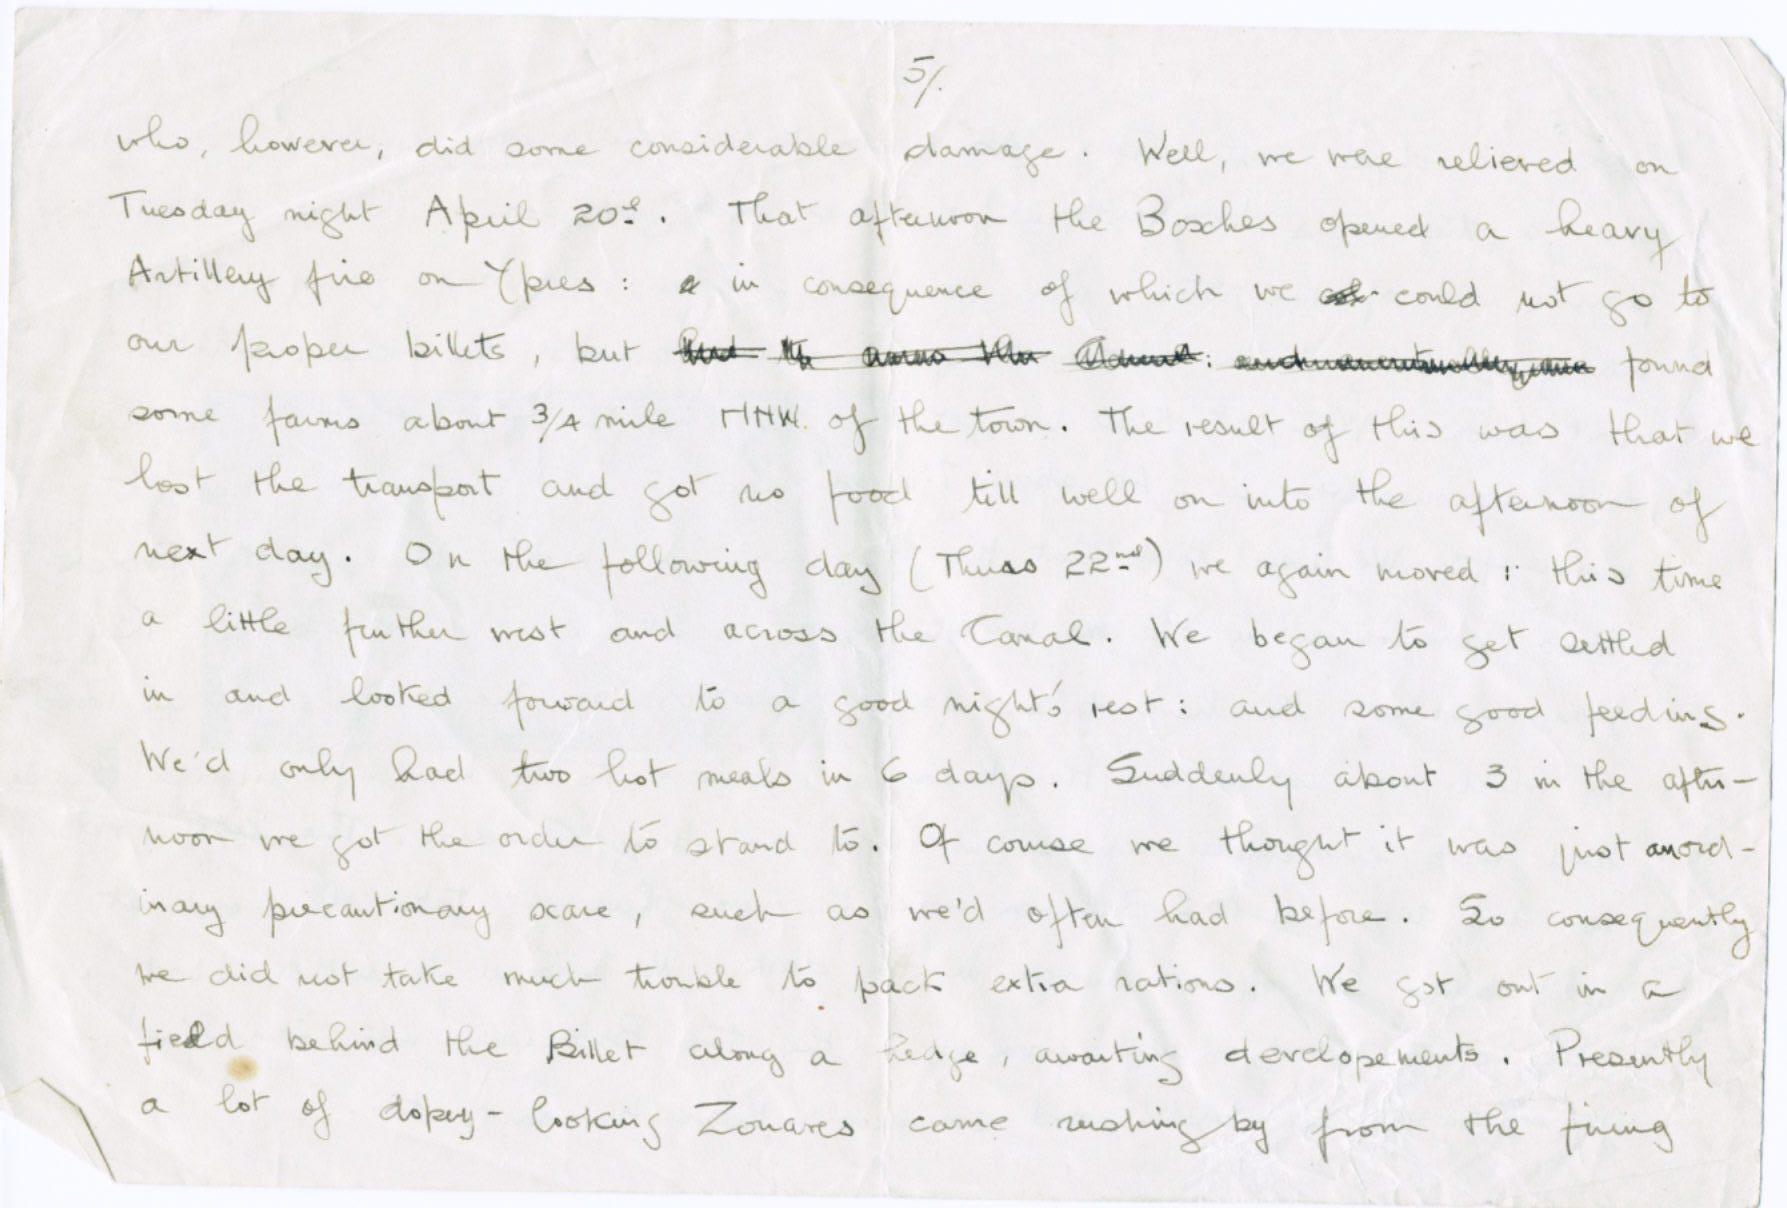 5/.
who, however, did some considerable damage. Well, we were relieved on
Tuesday night April 20th. That afternoon the Bosches opened a heavy
Artillery fire on Ypres: in consequence of which we could not go to
our proper billets, but found
some farms about 3/4 mile NNW. of the town. The result of this was that we
lost the transport and got no food till well on into the afternoon of
next day. On the following day (Thurs 22nd) we again moved: this time
a little further west and across the Canal. We began to get settled
in and looked forward to a good night's rest: and some good feeding.
We'd only had two hot meals in 6 days. Suddenly about 3 in the after-
noon we got the order to stand to. Of course we thought it was just an ord-
inary precautionary scare, such as we'd often had before. So consequently
we did not take much trouble to pack extra rations. We got out in a
field behind the Billet along a hedge, awaiting developements. Presently
a lot of dopey-looking Zouaves came rushing by from the firing